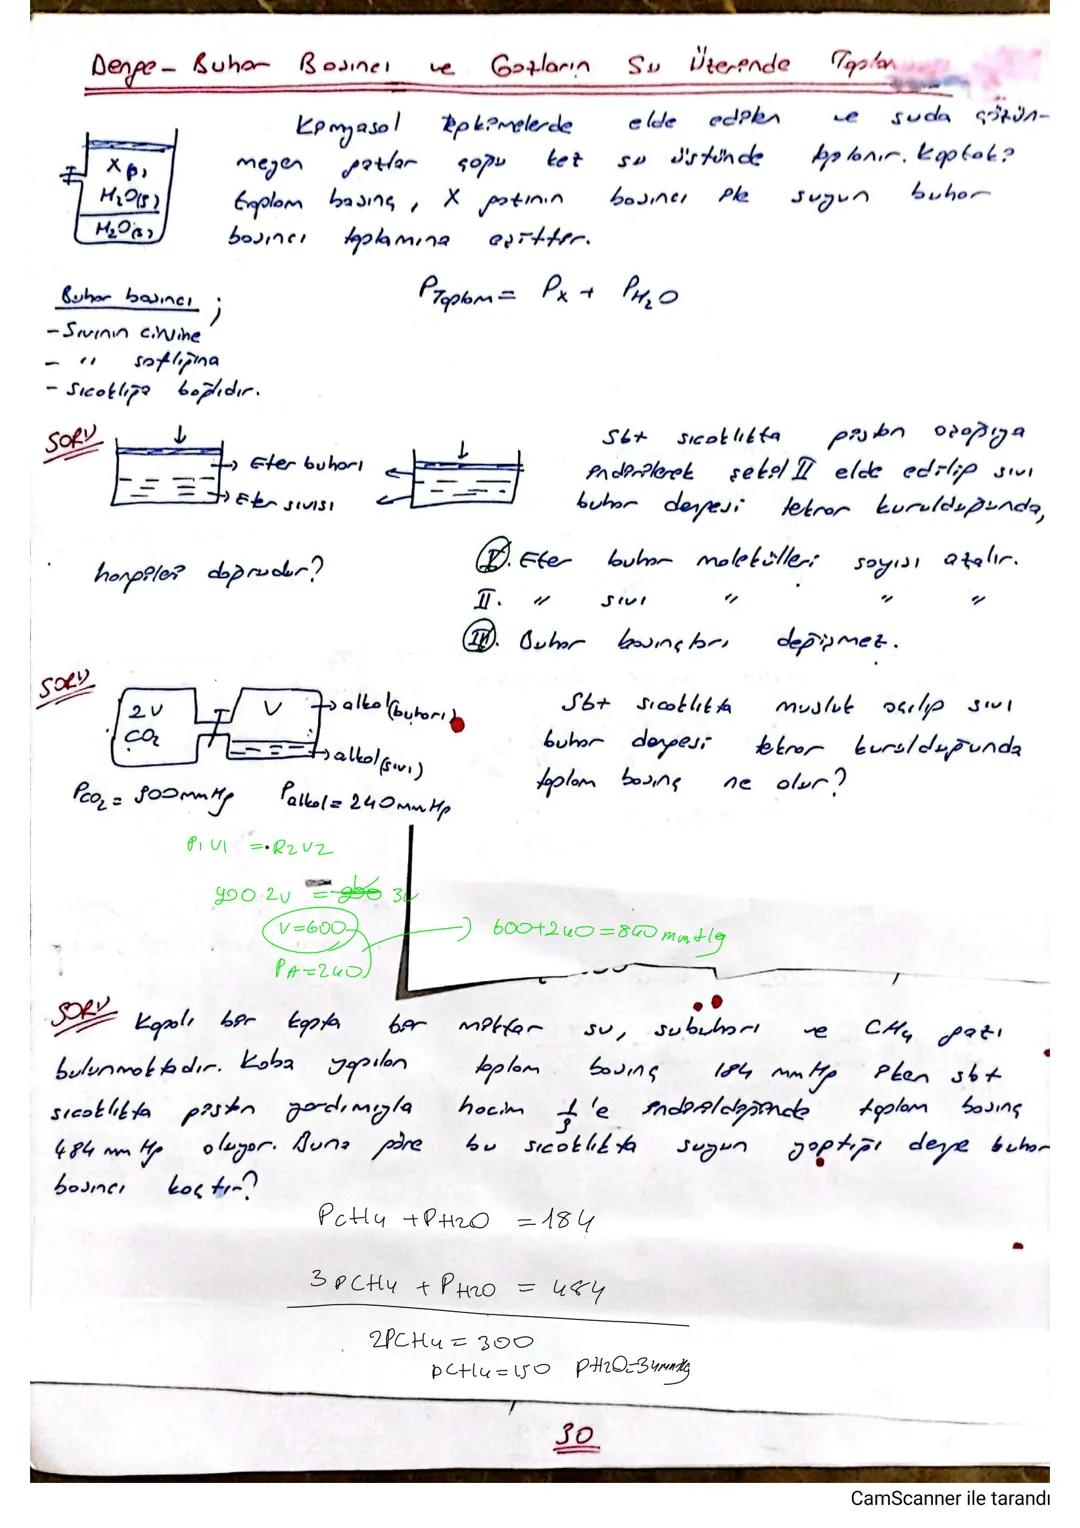 Denge - Buhar Basıncı ve Gazların Su Üzerinde Toplan
Kimyasal tepkimelerde elde edilen ve suda çözün-
meyen gazlar çoğu kez su üstünde toplanır. Kaptaki
toplam basınç, X gazının basıncı ile suyun buhar
basıncı toplamına eşittir.
X(g)
H₂O(g)
H₂O(s)
PToplam = Px + PH₂O
Buhar basıncı ;
- Sıvının cinsine
- " saflığına
- Sıcaklığa bağlıdır.
SORU
Eter buharı
Eter sıvısı
Sbt sıcaklıkta piston aşağıya
indirilerek şekil II elde edilip sıvı
buhar dengesi tekrar kurulduğunda,
I. Eter buhar molekülleri sayısı azalır.
II. " sıvı " " "
III. Buhar basınçları değişmez.
hangileri doğrudur?
SORU
2V
CO₂
V
alkol(buharı)
alkol(sıvı)
PCO₂ = 900 mm Hg Palkol = 240 mm Hg
Sbt sıcaklıkta musluk açılıp sıvı
buhar dengesi tekrar kurulduğunda
toplam basınç ne olur?
P1V1 = P2V2
900.2V = 3V
V=600
PA=240
600+240=840 mmHg
SORU
Kapalı bir kapta bir miktar su, su buharı ve CH₄ gazı
bulunmaktadır. Kaba yapılan toplam basınç 184 mm Hg iken sbt
sıcaklıkta piston yardımıyla hacim 1/3'e indirildiğinde toplam basınç
484 mm Hg oluyor. Buna göre bu sıcaklıkta suyun yaptığı denge buhar
basıncı kaçtır?
PCH4 + PH2O = 184
3PCH4 + PH2O = 484
2PCH4 = 300
PCH4 = 150 PH2O=34mmHg
30
CamScanner ile tarandı